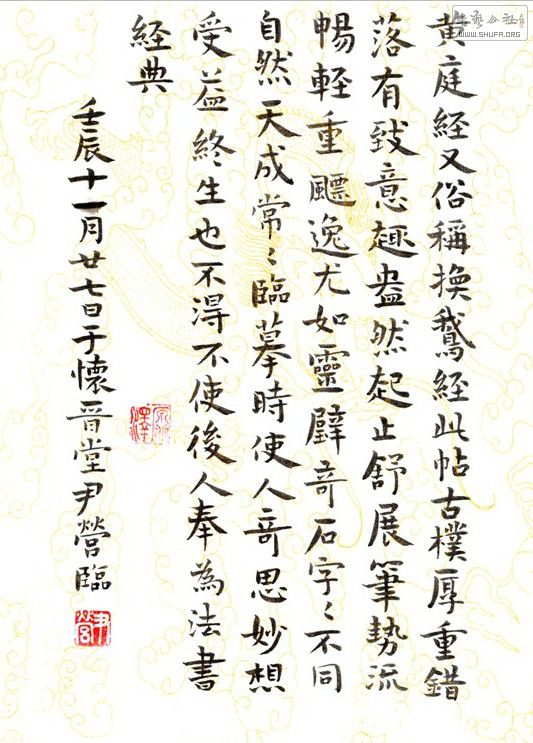 黄庭経又俗稱換鵞経此帖古樸厚重錯
落有致意趣盎然起止舒展筆勢流
暢軽重飃逸尤如靈壁奇石字〻不同
自然天成常〻臨摹時使人奇思妙想
受益終生也不淂不使後人奉為法書
経典
壬辰十一月廿七日于懷晋堂尹營臨
尹營
書法公社
WWW.SHUFA.ORG